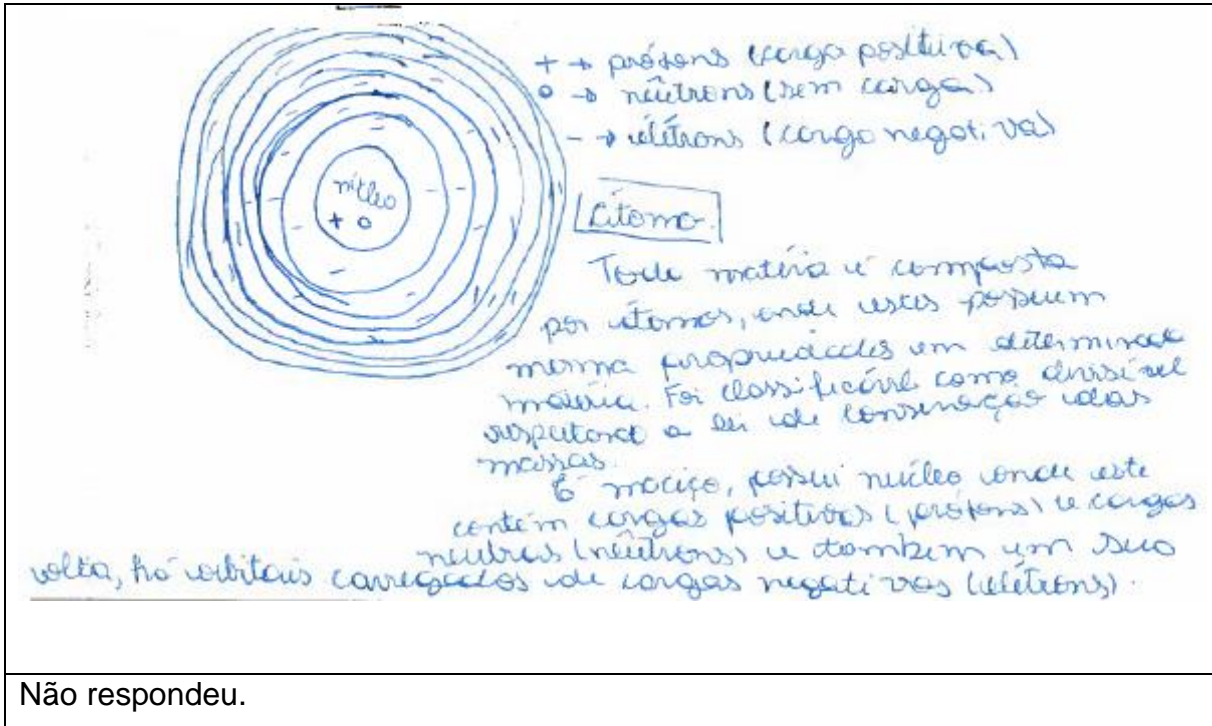 + → prótons (carga positiva)
o → nêutrons (sem carga)
- → elétrons (carga negativa)
núcleo
+ o
átomo.
Toda matéria é composta
por átomos, onde estes possuem
mesma propriedades em determinada
matéria. Foi classificável como divisível
respeitando a lei de conservação das
massas.
É maciço, possui núcleo onde este
contém cargas positivas (prótons) e cargas
neutras (nêutrons) e também em sua
volta, há orbitais carregados de cargas negativas (elétrons).
Não respondeu.